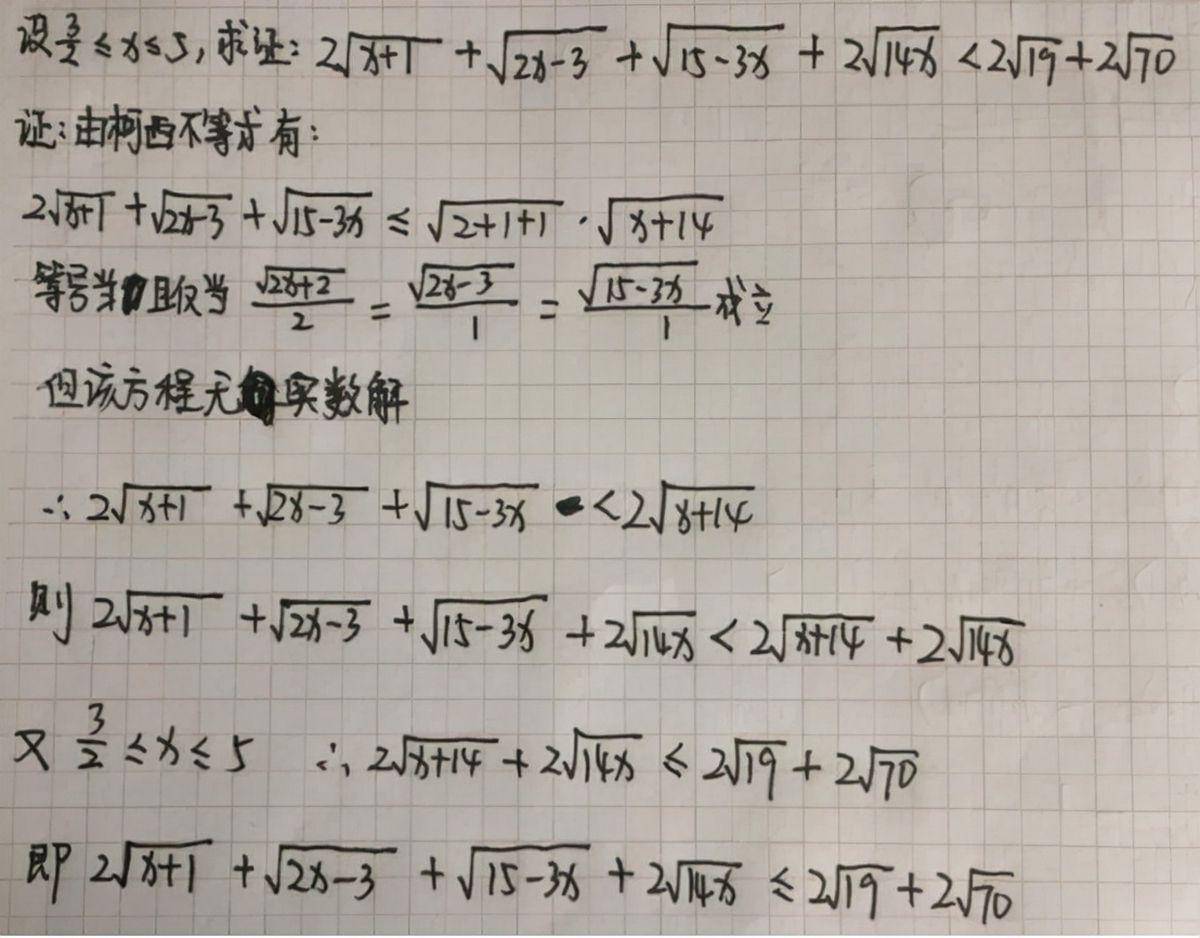 设 3/2 ≤ x ≤ 5, 求证: 2√(x+1) + √(2x-3) + √(15-3x) + 2√(14x) < 2√19 + 2√70
证: 由柯西不等式有:
2√(x+1) + √(2x-3) + √(15-3x) ≤ √(2+1+1) · √(x+14)
等号当且仅当 √(2x+2)/2 = √(2x-3)/1 = √(15-3x)/1 成立
但该方程无实数解
∴ 2√(x+1) + √(2x-3) + √(15-3x) < 2√(x+14)
则 2√(x+1) + √(2x-3) + √(15-3x) + 2√(14x) < 2√(x+14) + 2√(14x)
又 3/2 ≤ x ≤ 5 ∴ 2√(x+14) + 2√(14x) ≤ 2√19 + 2√70
即 2√(x+1) + √(2x-3) + √(15-3x) + 2√(14x) ≤ 2√19 + 2√70